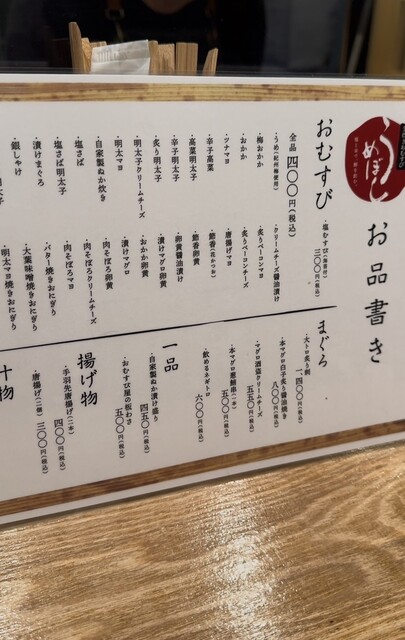 うめぼし
お品書き
おむすび
・塩むすび(海苔付) 三〇〇円(税込)
全品 四〇〇円(税込)
・うめ(紀州梅使用)
・クリームチーズ醤油漬け
・梅おかか
・炙りベーコンマヨ
・おかか
・炙りベーコンチーズ
・ツナマヨ
・唐揚げマヨ
・辛子高菜
・節香(花かつお)
・高菜明太子
・節香卵黄
・辛子明太子
・卵黄醤油漬け
・炙り明太子
・漬けマグロ卵黄
・明太子クリームチーズ
・おかか卵黄
・明太マヨ
・漬けマグロ
・自家製ぬか炊き
・肉そぼろクリームチーズ
・塩さば
・肉そぼろマヨ
・塩さば明太子
・バター焼きおにぎり
・漬けまぐろ
・大葉味噌焼きおにぎり
・銀しゃけ
・明太マヨ焼きおにぎり
まぐろ
・大トロ炙り刺 一、四〇〇円(税込)
・本マグロ白子炙り醤油焼き 八〇〇円(税込)
・マグロ酒盗クリームチーズ 五五〇円(税込)
・本マグロ葱鮪串(二本) 五〇〇円(税込)
・飲めるネギトロ 六〇〇円(税込)
一品
・自家製ぬか漬け盛り 四五〇円(税込)
・おむすび屋の板わさ 五〇〇円(税込)
揚げ物
・手羽先唐揚げ(二本) 四〇〇円(税込)
・唐揚げ(二個) 三〇〇円(税込)
汁物